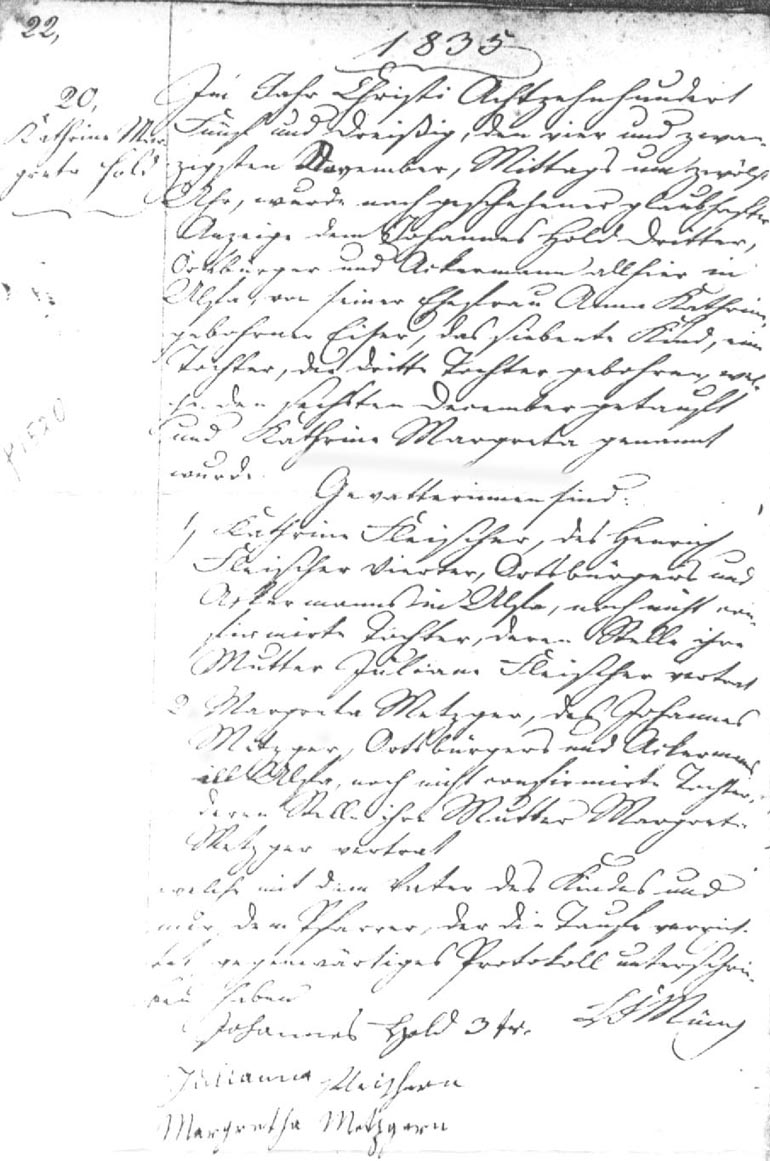 22,
1835
20,
Kathrine Mar-
greta Hold
Im Jahr Christi Achtzehnhundert
Fünf und dreißig, den vier und zwan-
zigsten November, Mittags um zwölf
Uhr, wurde nach geschehener glaubhafter
Anzeige dem Johannes Hold dritter,
Ortsbürger und Ackermann allhier in
Ulfa, von seiner Ehefrau Anna Kathrine,
gebohrne das siebente Kind, eine
Tochter, die dritte Tochter gebohren, wel-
che den sechsten December getauft
und Kathrine Margreta genannt
wurde.
Gevatterinnen sind:
1) Kathrine Fleischer, des Henrich
Fleischer Vierter, Ortsbürgers und
Ackermanns in Ulfa, noch nicht con-
firmirte Tochter, deren Stelle ihre
Mutter Juliane Fleischer vertrat
2 Margreta Metzger, des Johannes
Metzger, Ortsbürgers und Ackermanns
Ulfa, noch nicht confirmirte Tochter,
deren Stelle ihre Mutter Margreta
Metzger vertrat
welche mit dem Vater des Kindes und
mir, dem Pfarrer, der die Taufe verrich-
tet, gegenwärtiges Protokoll unterschrie-
ben haben
Johannes Hold 3tr.
Julianna Fleischern
Margretha Metzgern